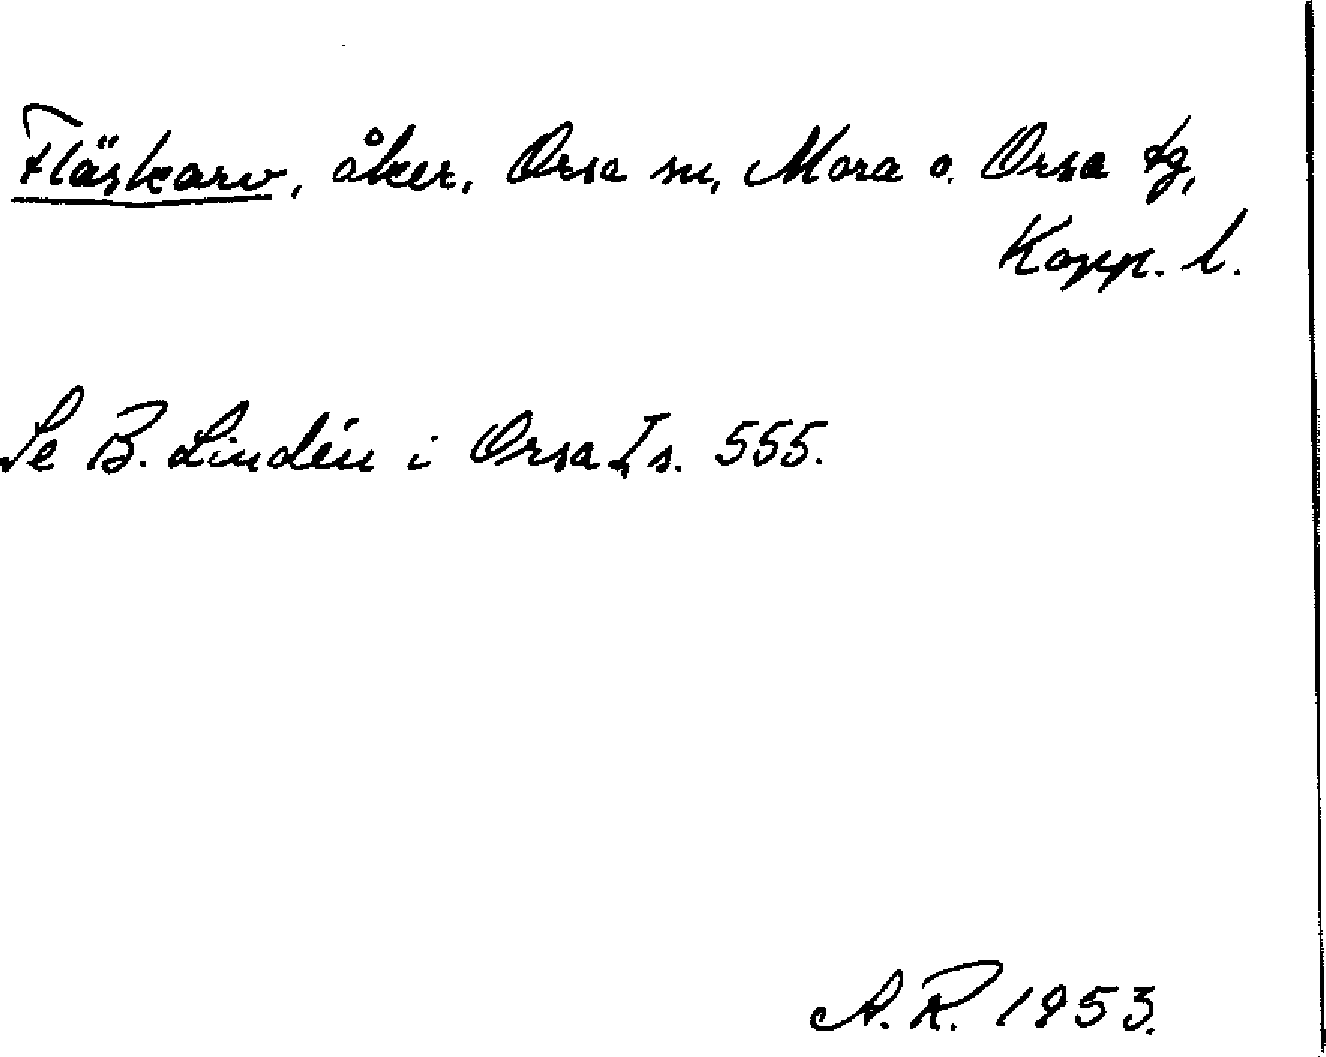 Fläskarv, åker, Orsa sn, Mora o. Orsa tg,
Kopp. l.
Se B. Lindén i Orsa I s. 555.
A. R. 1953.